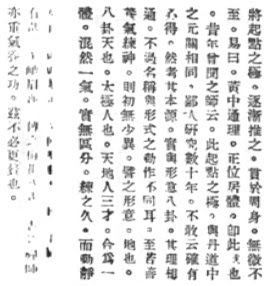 將起點之極。逐漸推之。貫於周身。無微不
至。易曰。黃中通理。正位居體。卽此意也
。昔年曾聞之師云。此起點之極。與丹道中
之元關相同。鄙人研究數十年。不敢云確有
心得。然考其本源。實與形意八卦。其理相
通。不過名稱與形式之動作不同耳。至若善
養氣練神。則初無少異。譬之形意。地也。
八卦天也。太極人也。天地人三才。合爲一
體。混然一氣。實無區分。練之久。而動靜
亦重氣養之功。
不必更
也。